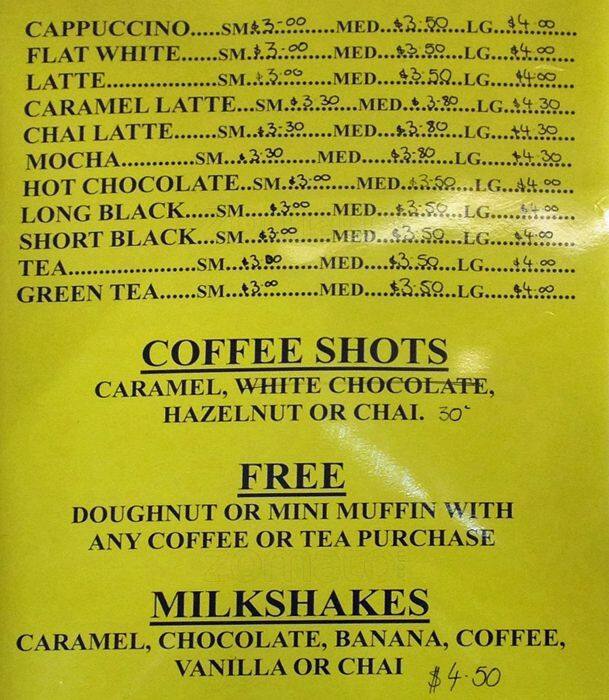 CAPPUCCINO.....SM.$3-00......MED..$3.50...LG..$4.00....
FLAT WHITE......SM.$3-00......MED..$3.50...LG...$4.00...
LATTE................SM..$3.00......MED...$3.50..LG...$4.00....
CARAMEL LATTE...SM.$3.30...MED.$3-80...LG..$4.30...
CHAI LATTE.......SM..$3-30......MED...$3-80..LG....$4.30...
MOCHA.............SM...$3.30......MED....$3-80...LG.....$4.30...
HOT CHOCOLATE..SM.$3.00....MED..$3-50...LG..$4.00...
LONG BLACK.....SM..$3.00....MED...$3-50..LG.....$4.00....
SHORT BLACK...SM..$3.00......MED...$3.50...LG....$4.00...
TEA......................SM...$3.00......MED....$3.50...LG.....$4.00....
GREEN TEA......SM...$3.00......MED....$3.50...LG.....$4.00....
COFFEE SHOTS
CARAMEL, WHITE CHOCOLATE,
HAZELNUT OR CHAI. 30c
FREE
DOUGHNUT OR MINI MUFFIN WITH
ANY COFFEE OR TEA PURCHASE
MILKSHAKES
CARAMEL, CHOCOLATE, BANANA, COFFEE,
VANILLA OR CHAI $4.50